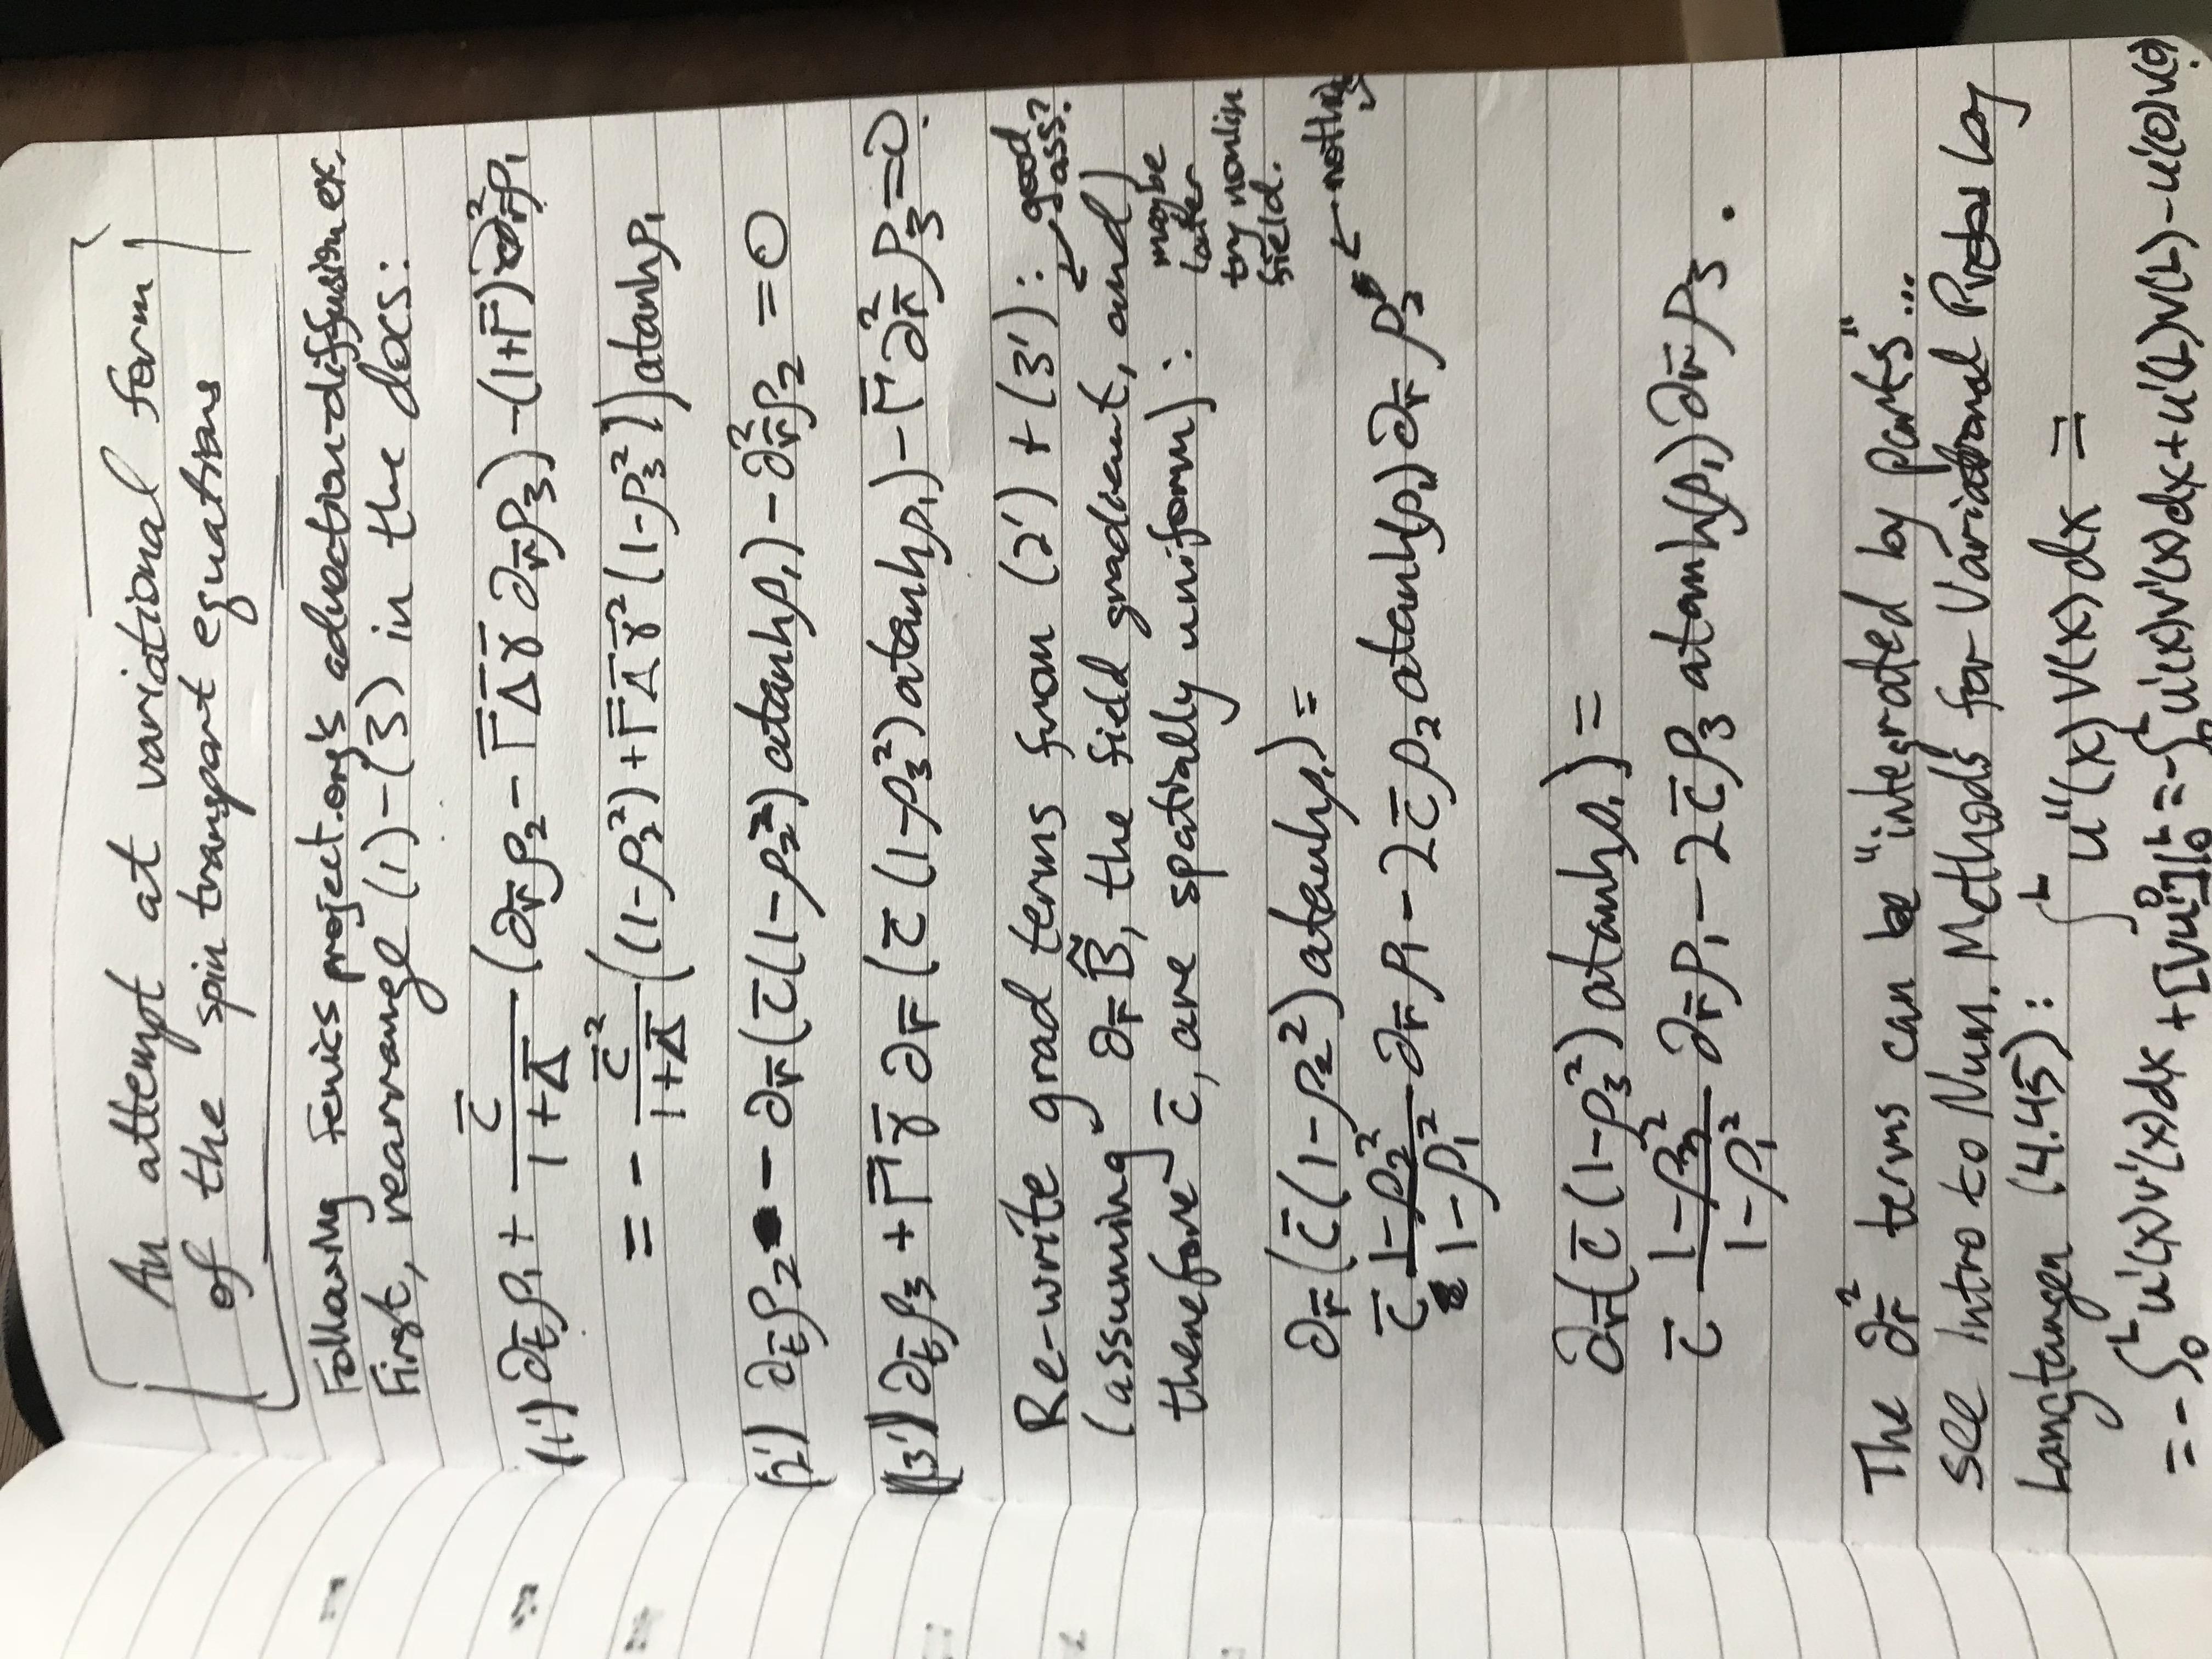 An attempt at variational form
of the spin transport equations
Following fenicsproject.org's advection-diffusion ex.
First, rearrange (1)-(3) in the docs:
(1') ∂_t̄ ρ₁ + c̄/(1+Δ̄) (∂_r̄ ρ₂ - Γ̄ Δ̄ γ̄ ∂_r̄ ρ₃) - (1+Γ̄) ∂²_r̄ ρ₁
= - c̄²/(1+Δ̄) ((1-ρ₂²) + Γ̄ Δ̄ γ̄² (1-ρ₃²)) atanh ρ₁
(2') ∂_t̄ ρ₂ - ∂_r̄ (c̄(1-ρ₂²) atanh ρ₁) - ∂²_r̄ ρ₂ = 0
(3') ∂_t̄ ρ₃ + Γ̄ γ̄ ∂_r̄ (c̄ (1-ρ₃²) atanh ρ₁) - Γ̄ ∂²_r̄ ρ₃ = 0.
Re-write grad terms from (2') + (3'):
good
ass?
(assuming ∂_r̄ B̃, the field gradient, and)
therefore c̄, are spatially uniform):
maybe
later
try nonlin
field.
∂_r̄ (c̄ (1-ρ₂²) atanh ρ₁) =
c̄ (1-ρ₂²)/(1-ρ₁²) ∂_r̄ ρ₁ - 2 c̄ ρ₂ atanh(ρ₁) ∂_r̄ ρ₂
← nothing
∂_r̄ (c̄ (1-ρ₃²) atanh ρ₁) =
c̄ (1-ρ₃²)/(1-ρ₁²) ∂_r̄ ρ₁ - 2 c̄ ρ₃ atanh(ρ₁) ∂_r̄ ρ₃.
The ∂²_r̄ terms can be "integrated by parts"...
see Intro to Num. Methods for Variational Probs by
Langtangen (4.45): ∫₀ᴸ u''(x) v(x) dx =
= - ∫₀ᴸ u'(x) v'(x) dx + [vu']|₀ᴸ = - ∫₀ᴸ u'(x) v'(x) dx + u'(L)v(L) - u'(0)v(0).